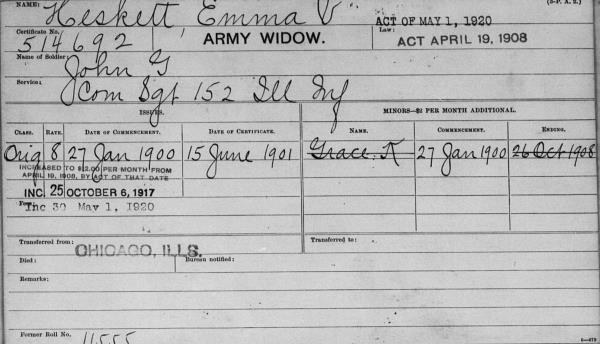 NAME: Heskett Emma V (3-P. A. 2.)
ACT OF MAY 1, 1920
Certificate No. 514692 ARMY WIDOW. Law: ACT APRIL 19, 1908
Name of Soldier: John G
Service: Com Sgt 152 Ill Inf
ISSUES. MINORS—$2 PER MONTH ADDITIONAL.
CLASS. RATE. DATE OF COMMENCEMENT. DATE OF CERTIFICATE. NAME. COMMENCEMENT. ENDING.
Orig 8 27 Jan 1900 15 June 1901 Grace K 27 Jan 1900 26 Oct 1908
INCREASED TO $12.00 PER MONTH FROM
APRIL 19, 1908, BY ACT OF THAT DATE
INC. 25 OCTOBER 6, 1917
Inc 30 May 1, 1920
Transferred from: CHICAGO, ILLS. Transferred to:
Died: Bureau notified:
Remarks:
Former Roll No. 11555